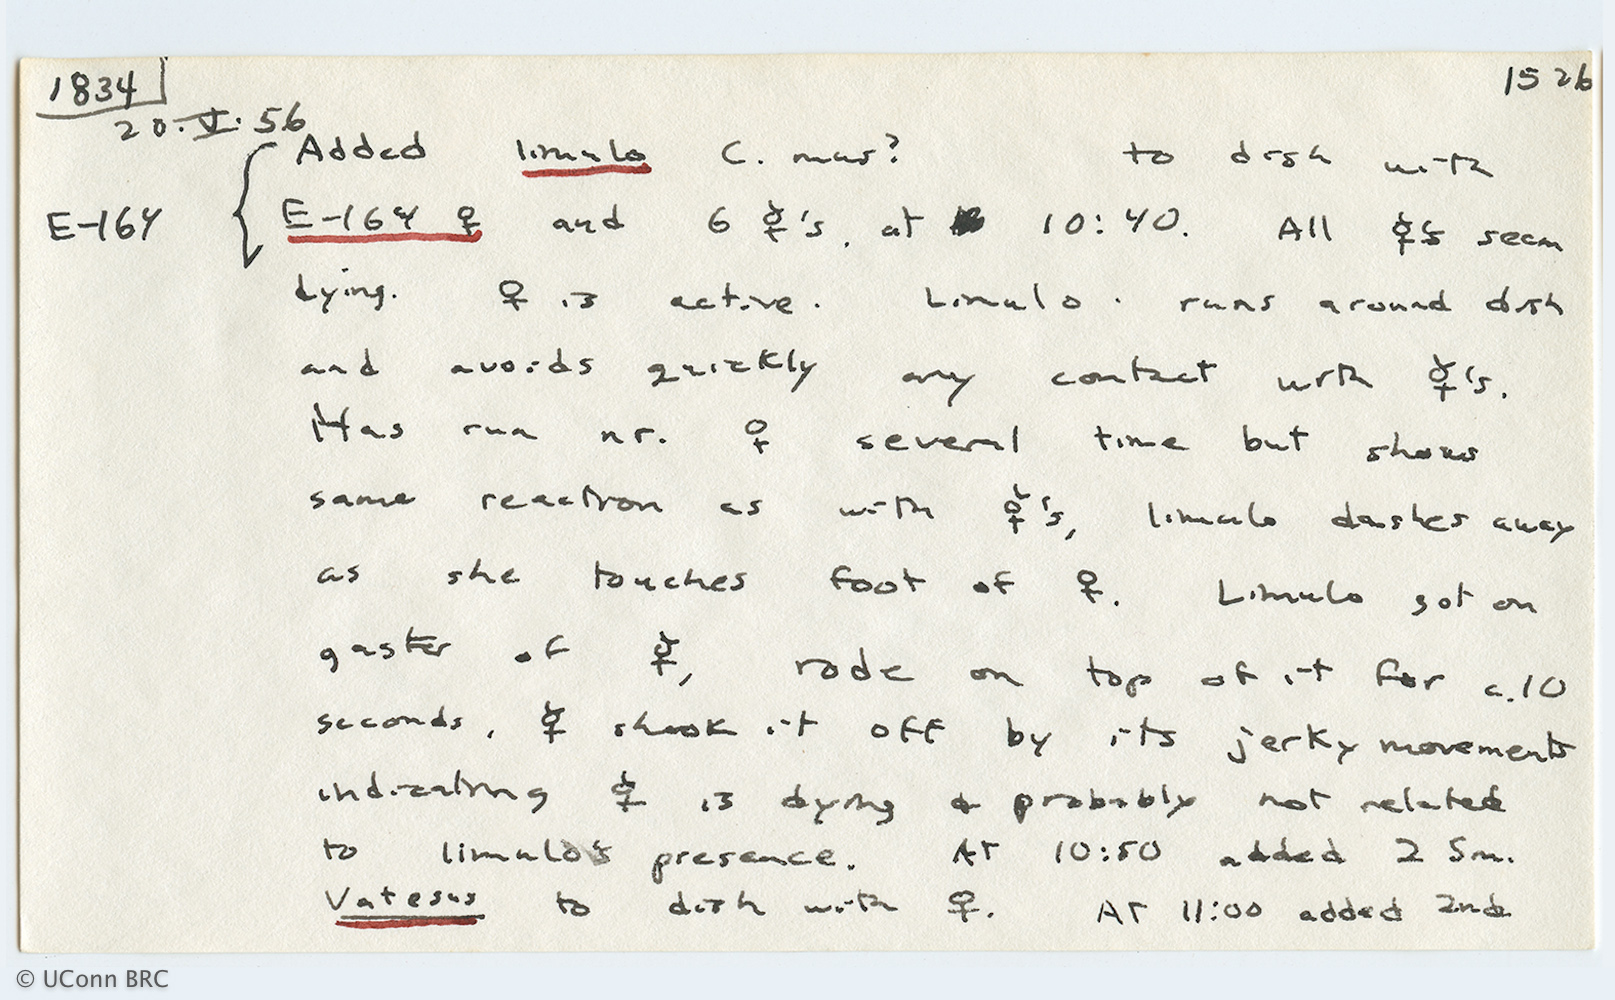 1834
1526
20.V.56
Added limulo C. mus? to dish with
E-164
E-164 ♀ and 6 ☿'s, at 10:40. All ☿'s seem
dying. ♀ is active. Limulo. runs around dish
and avoids quickly any contact with ☿'s.
Has run nr. ♀ several time but shows
same reaction as with ☿'s, limulo dashes away
as she touches foot of ♀. Limulo got on
gaster of ☿, rode on top of it for c.10
seconds, ☿ shook it off by its jerky movements
indicating ☿ is dying & probably not related
to limulo's presence. At 10:50 added 2 Sm.
Vatesus to dish with ♀. At 11:00 added 2nd
© UConn BRC